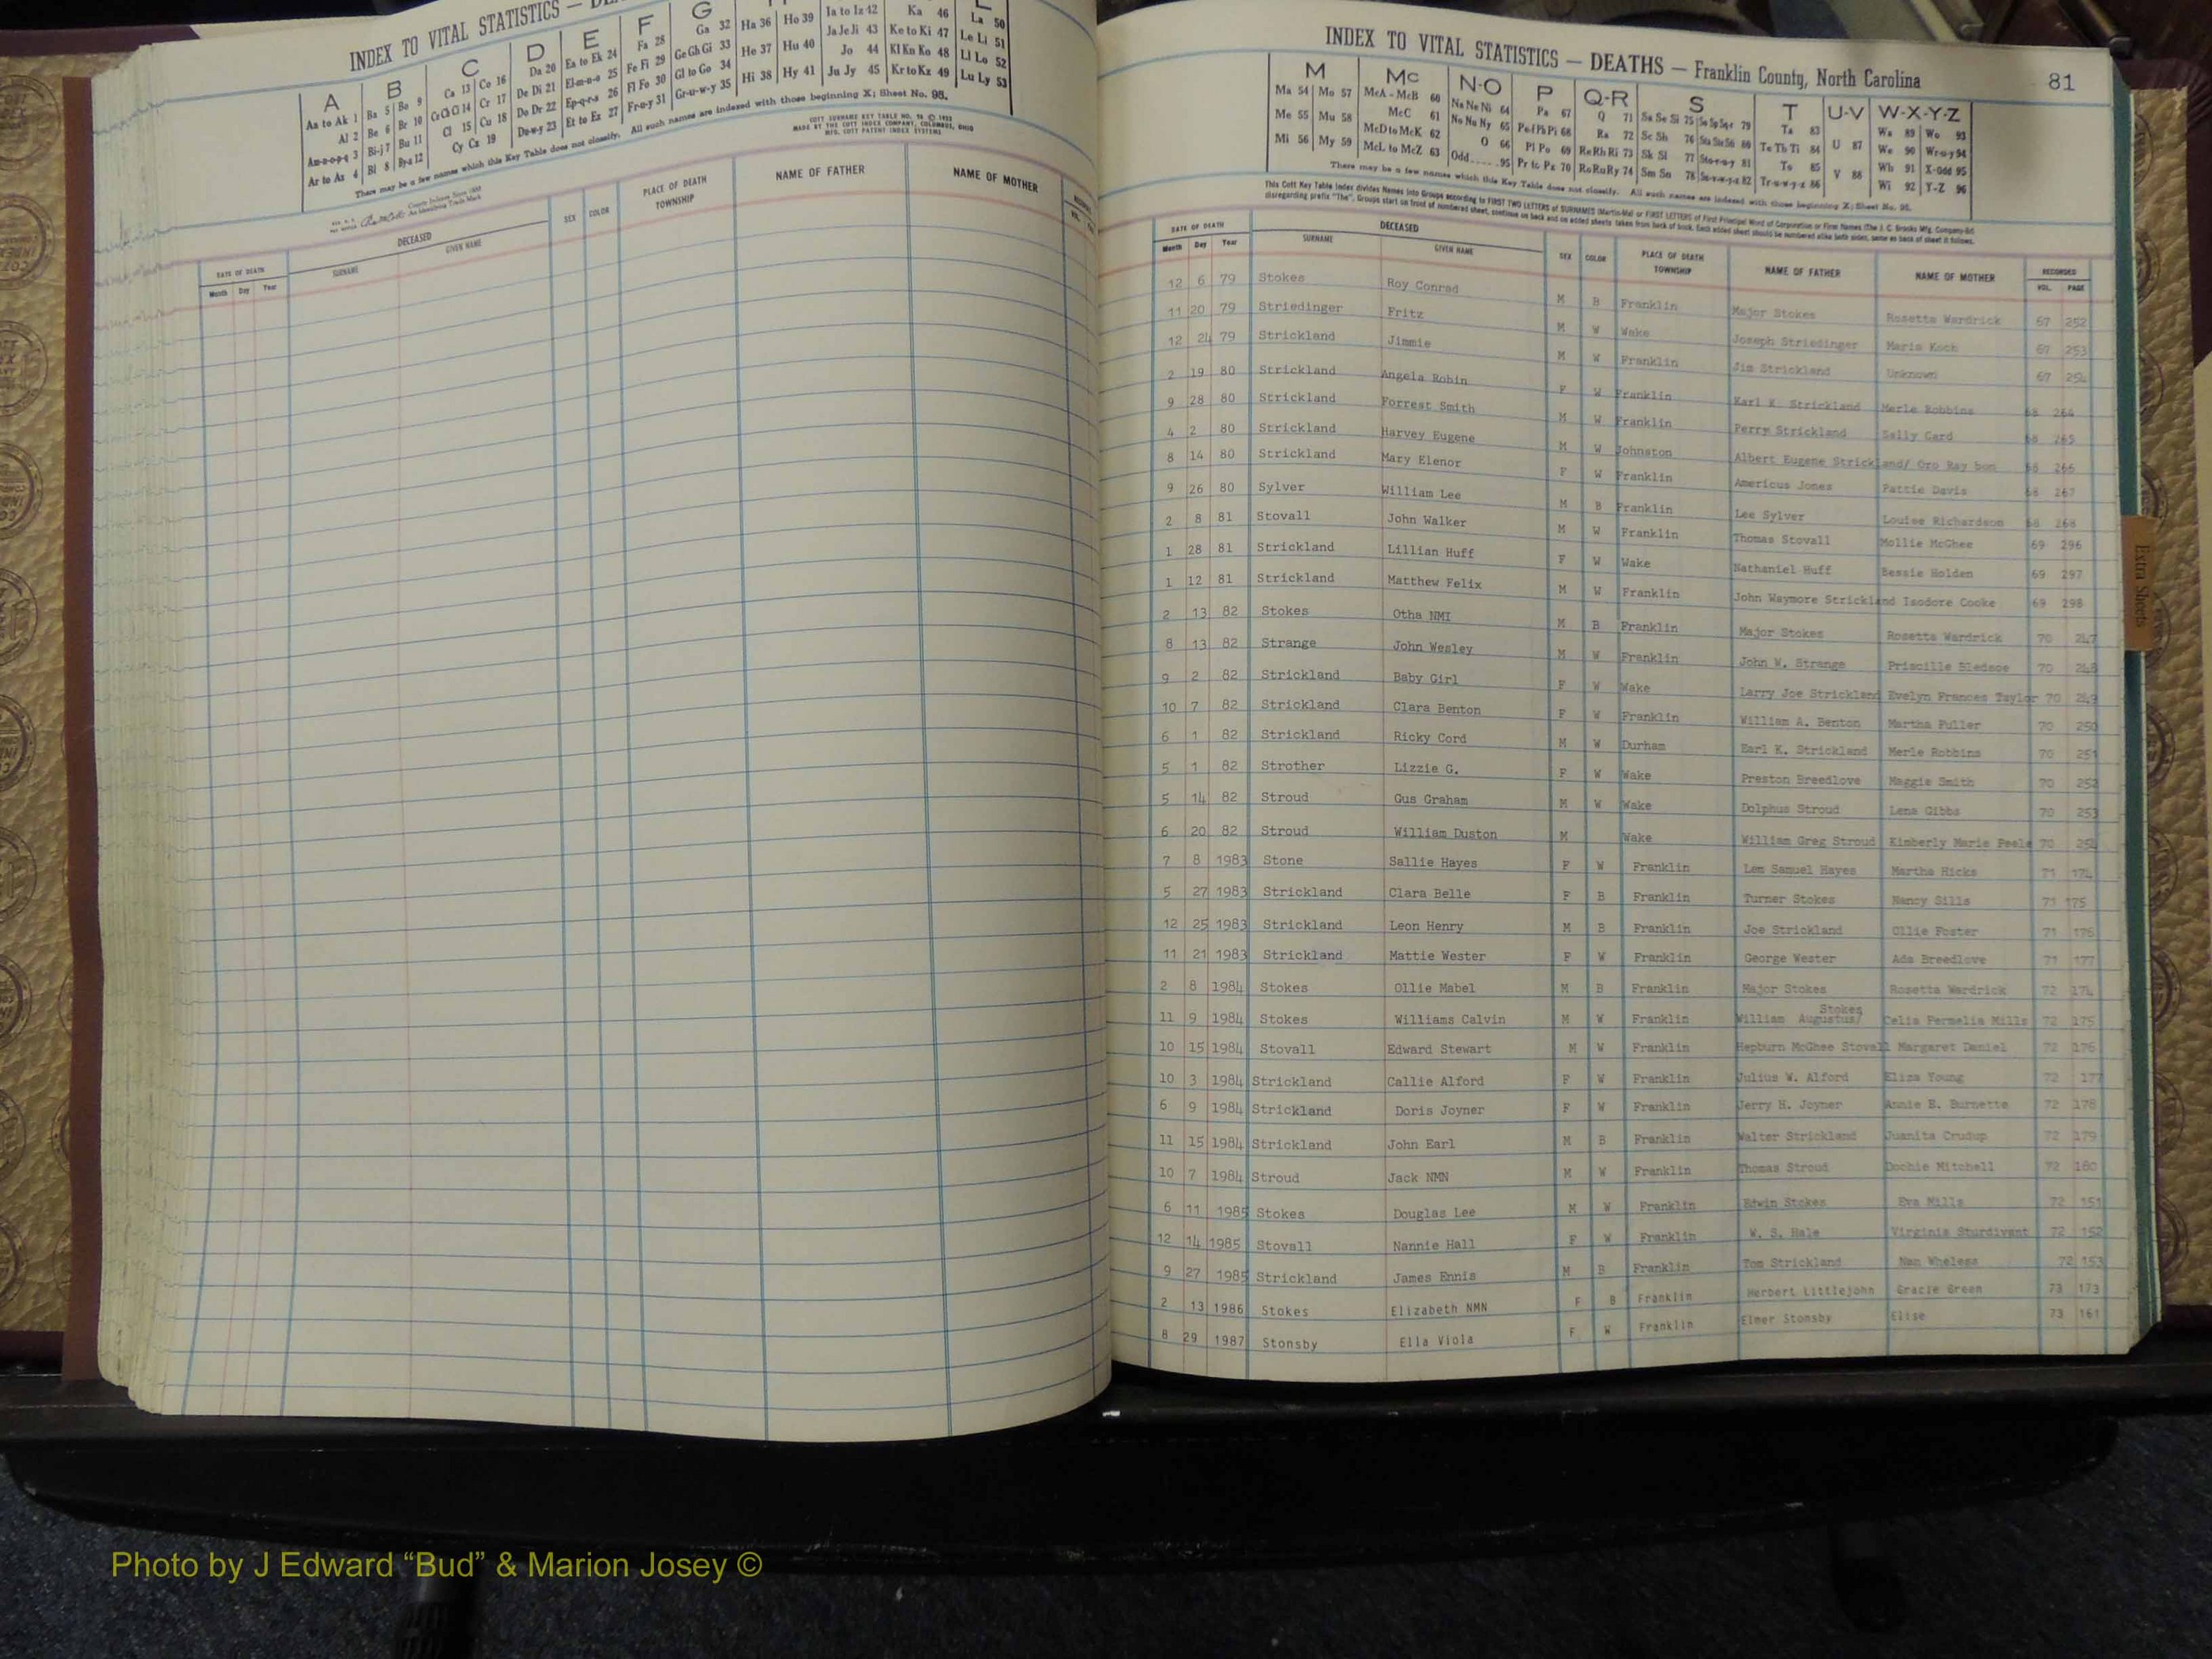 INDEX TO VITAL STATISTICS —
A B C D E F G
Aa to Ak 1 Ba 5 Bo 9 Ca 13 Co 16 Da 20 Ea to Ek 24 Fa 28 Ga 32 Ha 36 Ho 39 Ia to Iz 42 Ka 46 La 50
Al 2 Be 6 Br 10 Ce Ch Ci 14 Cr 17 De Di 21 El-m-n-o 25 Fe Fi 29 Ge Gh Gi 33 He 37 Hu 40 Ja Je Ji 43 Ke to Ki 47 Le Li 51
Am-n-o-p-q 3 Bi-j 7 Bu 11 Cl 15 Cu 18 Do Dr 22 Ep-q-r-s 26 Fl Fo 30 Gl to Go 34 Hi 38 Hy 41 Jo 44 Kl Kn Ko 48 Ll Lo 52
Ar to Az 4 Bl 8 By-z 12 Cy Cz 19 Du-w-y 23 Et to Ez 27 Fr-u-y 31 Gr-u-w-y 35 Ju Jy 45 Kr to Kz 49 Lu Ly 53
There may be a few names which this Key Table does not classify. All such names are indexed with those beginning X; Sheet No. 95.
COTT SURNAME KEY TABLE NO.
MADE BY THE COTT INDEX COMPANY, COLUMBUS, OHIO
MFG. COTT PATENT INDEX SYSTEMS
County Indexes Since 1888
An Identifying Trade Mark
DATE OF DEATH DECEASED SEX COLOR PLACE OF DEATH TOWNSHIP NAME OF FATHER NAME OF MOTHER
Month Day Year SURNAME GIVEN NAME VOL.
INDEX TO VITAL STATISTICS — DEATHS — Franklin County, North Carolina 81
M Mc N-O P Q-R S T U-V W-X-Y-Z
Ma 54 Mo 57 McA - McB 60 Na Ne Ni 64 Pa 67 Q 71 Sa Se Si 75 Ta 83 Wa 89 Wo 93
Me 55 Mu 58 McC 61 No Nu Ny 65 Pe Pf Ph Pi 68 Ra 72 Sc Sh 76 Te Th Ti 84 U 87 We 90 Wr-u-y 94
Mi 56 My 59 McD to McK 62 O 66 Pl Po 69 Re Rh Ri 73 Sk Sl 77 To 85 Wh 91 X-Odd 95
McL to McZ 63 Odd 95 Pr to Pz 70 Ro Ru Ry 74 Sm Sn 78 Tr-u-w-y-z 86 V 88 Wi 92 Y-Z 96
There may be a few names which this Key Table does not classify. All such names are indexed with those beginning X; Sheet No. 95.
DATE OF DEATH DECEASED SEX COLOR PLACE OF DEATH TOWNSHIP NAME OF FATHER NAME OF MOTHER RECORDED
Month Day Year SURNAME GIVEN NAME VOL. PAGE
12 6 79 Stokes Roy Conrad M B Franklin Major Stokes Rosetta Wardrick 67 252
11 20 79 Striedinger Fritz M W Wake Joseph Striedinger Maria Koch 67 253
12 24 79 Strickland Jimmie M W Franklin Jim Strickland Unknown 67 254
2 19 80 Strickland Angela Robin F W Franklin Earl K. Strickland Merle Robbins 68 264
9 28 80 Strickland Forrest Smith M W Franklin Perry Strickland Sally Card 68 265
4 2 80 Strickland Harvey Eugene M W Johnston Albert Eugene Strickland/ Oro Ray bon 68 266
8 14 80 Strickland Mary Elenor F W Franklin Americus Jones Pattie Davis 68 267
9 26 80 Sylver William Lee M B Franklin Lee Sylver Louise Richardson 68 268
2 8 81 Stovall John Walker M W Franklin Thomas Stovall Mollie McGhee 69 296
1 28 81 Strickland Lillian Huff F W Wake Nathaniel Huff Bessie Holden 69 297
1 12 81 Strickland Matthew Felix M W Franklin John Waymore Strickland Isodore Cooke 69 298
2 13 82 Stokes Otha NMI M B Franklin Major Stokes Rosetta Wardrick 70 247
8 13 82 Strange John Wesley M W Franklin John W. Strange Priscille Bledsoe 70 248
9 2 82 Strickland Baby Girl F W Wake Larry Joe Strickland Evelyn Frances Taylor 70 249
10 7 82 Strickland Clara Benton F W Franklin William A. Benton Martha Fuller 70 250
6 1 82 Strickland Ricky Cord M W Durham Earl K. Strickland Merle Robbins 70 251
5 1 82 Strother Lizzie G. F W Wake Preston Breedlove Maggie Smith 70 252
5 14 82 Stroud Gus Graham M W Wake Dolphus Stroud Lena Gibbs 70 253
6 20 82 Stroud William Duston M Wake William Greg Stroud Kimberly Marie Peele 70 254
7 8 1983 Stone Sallie Hayes F W Franklin Lem Samuel Hayes Martha Hicks 71 174
5 27 1983 Strickland Clara Belle F B Franklin Turner Stokes Nancy Sills 71 175
12 25 1983 Strickland Leon Henry M B Franklin Joe Strickland Ollie Foster 71 176
11 21 1983 Strickland Mattie Wester F W Franklin George Wester Ada Breedlove 71 177
2 8 1984 Stokes Ollie Mabel M B Franklin Major Stokes Rosetta Wardrick 72 174
11 9 1984 Stokes Williams Calvin M W Franklin William Augustus/ Stokes Celia Permelia Mills 72 175
10 15 1984 Stovall Edward Stewart M W Franklin Hepburn McGhee Stovall Margaret Daniel 72 176
10 3 1984 Strickland Callie Alford F W Franklin Julius W. Alford Eliza Young 72 177
6 9 1984 Strickland Doris Joyner F W Franklin Jerry H. Joyner Annie E. Burnette 72 178
11 15 1984 Strickland John Earl M B Franklin Walter Strickland Juanita Crudup 72 179
10 7 1984 Stroud Jack NMN M W Franklin Thomas Stroud Dochie Mitchell 72 180
6 11 1985 Stokes Douglas Lee M W Franklin Edwin Stokes Eva Mills 72 151
12 14 1985 Stovall Nannie Hall F W Franklin W. S. Hale Virginia Sturdivant 72 152
9 27 1985 Strickland James Ennis M B Franklin Tom Strickland Nan Wheless 72 153
2 13 1986 Stokes Elizabeth NMN F B Franklin Herbert Littlejohn Gracie Green 73 173
8 29 1987 Stonsby Ella Viola F W Franklin Elmer Stonsby Elise 73 161
Extra Sheets
Photo by J Edward “Bud” & Marion Josey ©